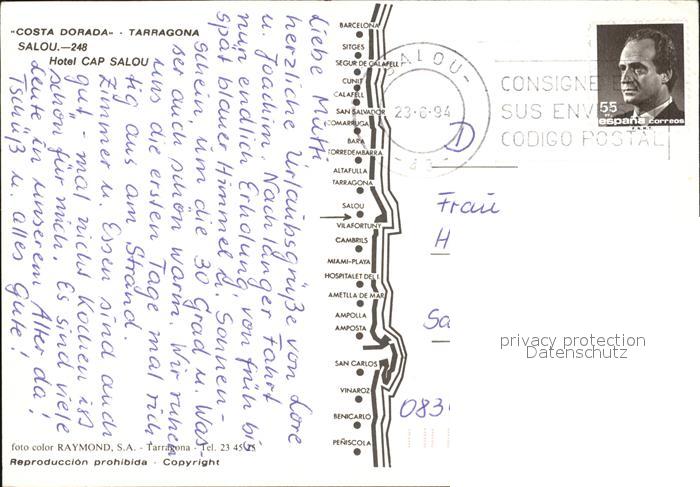 "COSTA DORADA" - TARRAGONA
SALOU.—248
Hotel CAP SALOU
Liebe
herzliche Urlaubsgrüße von Lore
u. Joachim. Nach langer Fahrt
nun endlich Erholung, von früh bis
spät blauer Himmel u. Sonnen-
schein, um die 30 Grad u. Was-
ser auch schön warm. Wir ruhen
uns die ersten Tage mal rich
tig aus am Strand.
Zimmer u. Essen sind auch
gut, mal nicht kochen ist
schön für mich. Es sind viele
Leute in unserem Alter da!
Tschüß u. alles Gute!
foto color RAYMOND, S.A. - Tarragona - Tel. 23 45
Reproducción prohibida - Copyright
BARCELONA
SITGES
SEGUR DE CALAFELL
CUNIT
CALAFELL
SAN SALVADOR
COMARRUGA
BARA
TORREDEMBARRA
ALTAFULLA
TARRAGONA
SALOU
VILAFORTUNY
CAMBRILS
MIAMI-PLAYA
HOSPITALET DEL I.
AMETLLA DE MAR
AMPOLLA
AMPOSTA
SAN CARLOS
VINAROZ
BENICARLO
PEÑISCOLA
SALOU-
23-6-94
CONSIGNE
SUS ENV
CODIGO POSTAL
55
españa correos
F.N.M.T.
D
Frau
H
Sa
083
privacy protection
Datenschutz